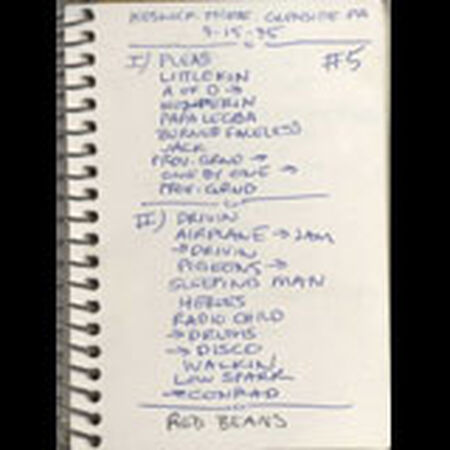 KESWICK THEATRE GLENSIDE PA
9-15-95
#5
I) PLEAS
LITTLE KIN
A OF D →
WONDERIN
PAPA LEGBA
BURNIE FACELESS
JACK
PROV. GRND →
ONE BY ONE →
PROV. GRND
II) DRIVIN
AIRPLANE → JAM
→ DRIVIN
PIGEONS →
SLEEPING MAN
HEROES
RADIO CHILD
→ DRUMS
→ DISCO
WALKIN
LOW SPARK
→ CONRAD
RED BEANS